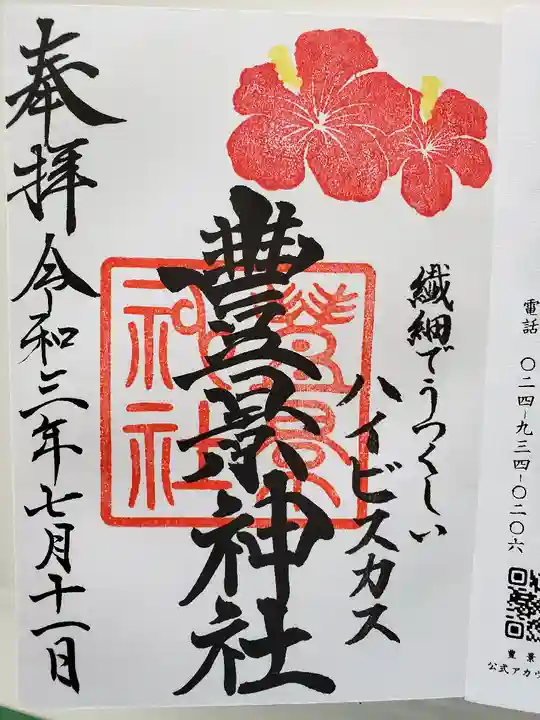 繊細でうつくしい
ハイビスカス
豊景神社
豊景
神社
奉拝 令和三年七月十一日
電話 〇二四-九三四-〇二〇六
豊景
公式アカウ